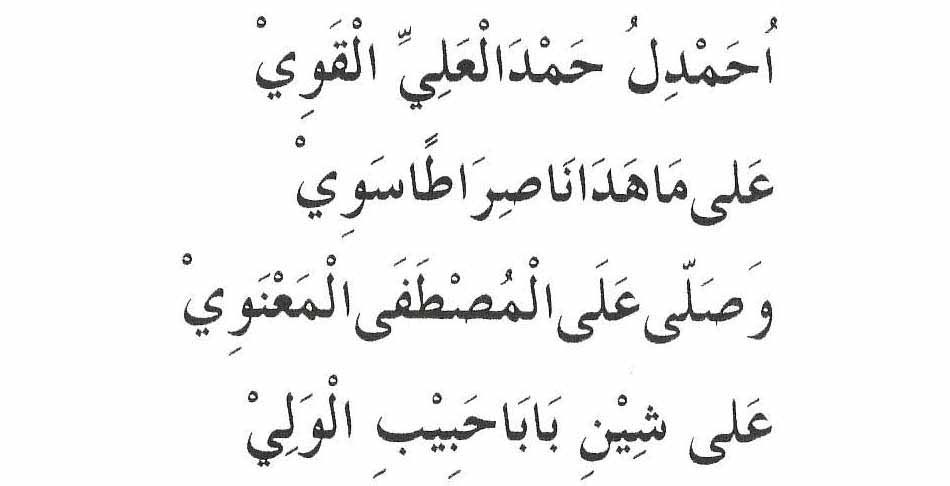 اُحَمْدِلُ حَمْدَالْعَلِيِّ الْقَوِيْ
عَلى مَاهَدَانَاصِرَاطًاسَوِيْ
وَصَلّى عَلَى الْمُصْطَفَى الْمَعْنَوِيْ
عَلى شِيْنِ بَابَاحَبِيْبِ الْوَلِيْ